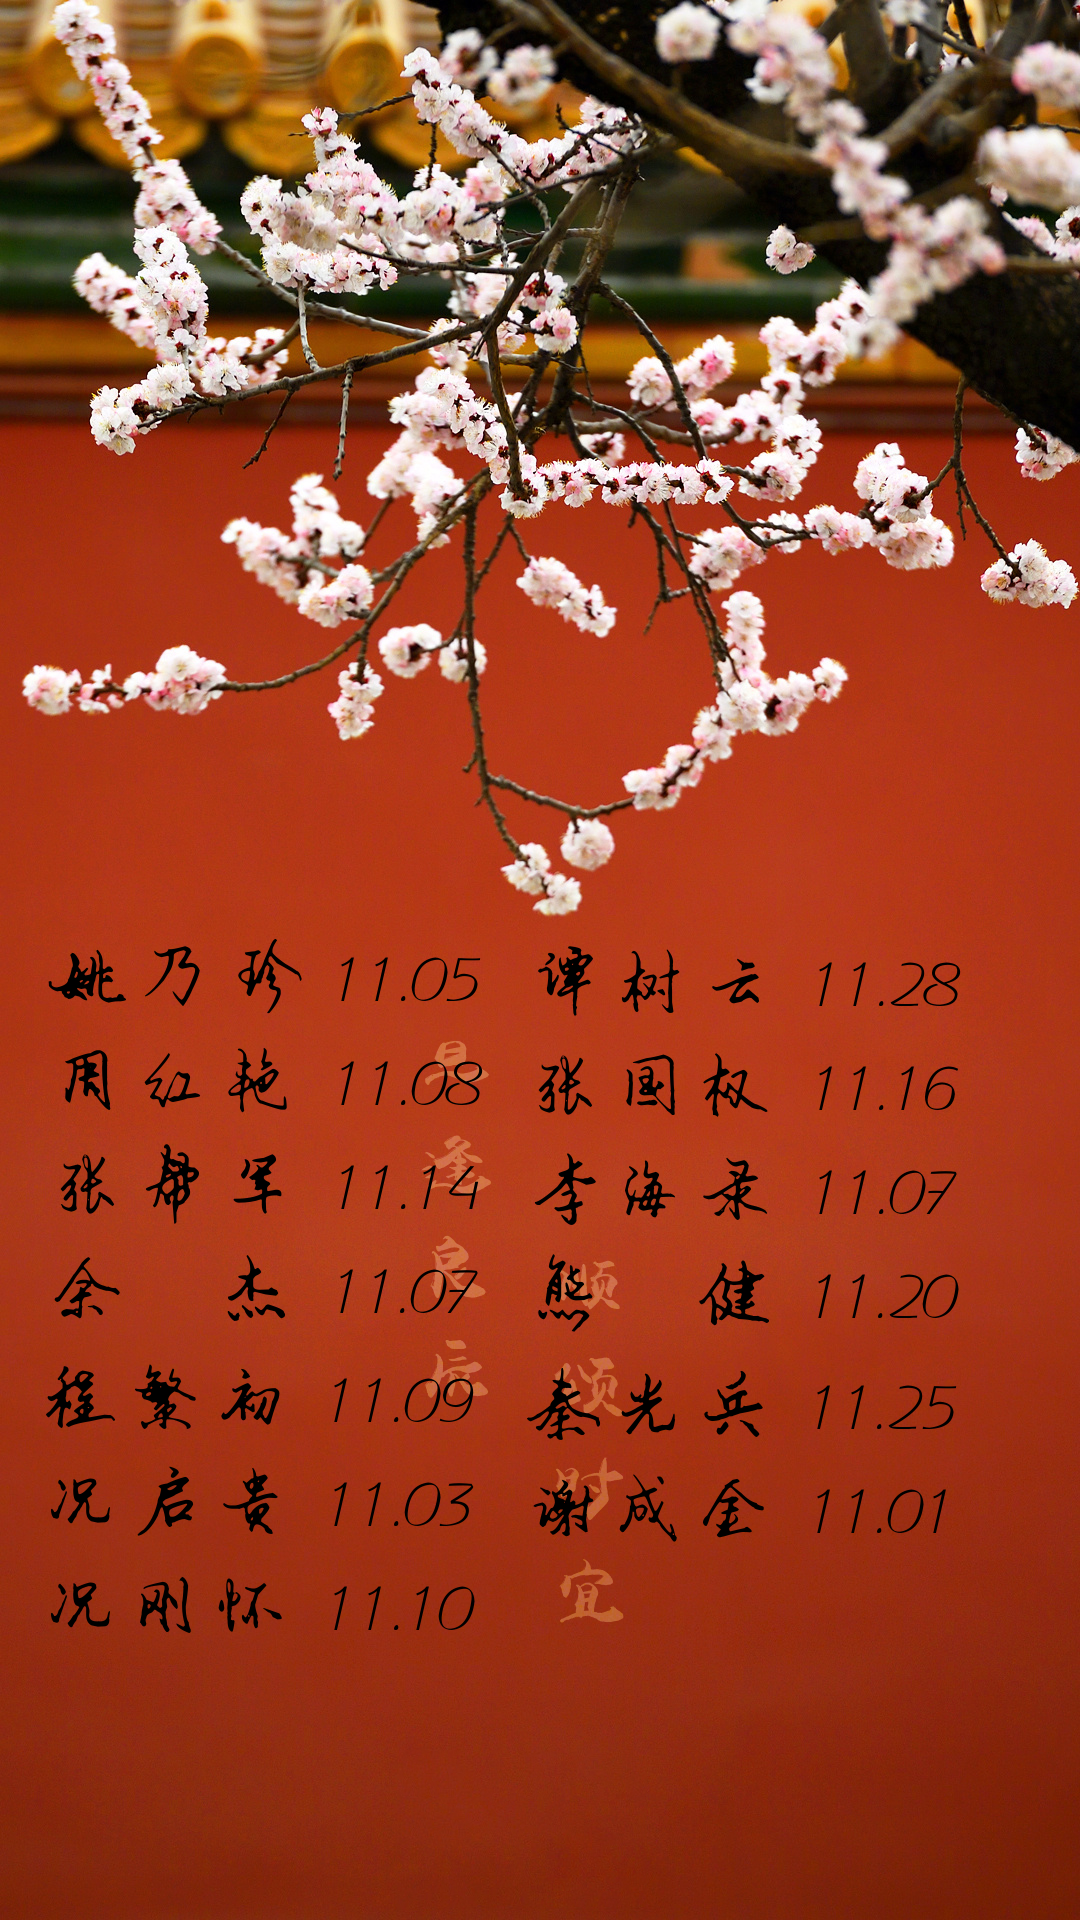 姚乃珍 11.05 谭树云 11.28
周红艳 11.08 张国权 11.16
张帮军 11.14 李海录 11.07
余 杰 11.07 熊 健 11.20
程繁初 11.09 秦光兵 11.25
况启贵 11.03 谢成金 11.01
况刚怀 11.10
昌逢良辰
顺颂时宜